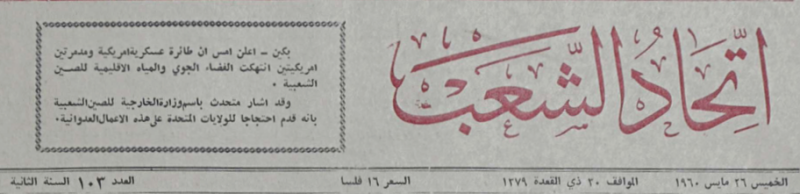 اتحاد الشعب
بكين – اعلن امس ان طائرة عسكرية امريكية ومدمرتين
امريكيتين انتهكت الفضاء الجوي والمياه الاقليمية للصين
الشعبية ٠
وقد اشار متحدث باسم وزارة الخارجية للصين الشعبية
بانه قدم احتجاجا للولايات المتحدة على هذه الاعمال العدوانية٠
الخميس ٢٦ مايس ١٩٦٠ الموافق ٣٠ ذي القعدة ١٣٧٩ السعر ١٦ فلسا العدد ١٠٣ السنة الثانية